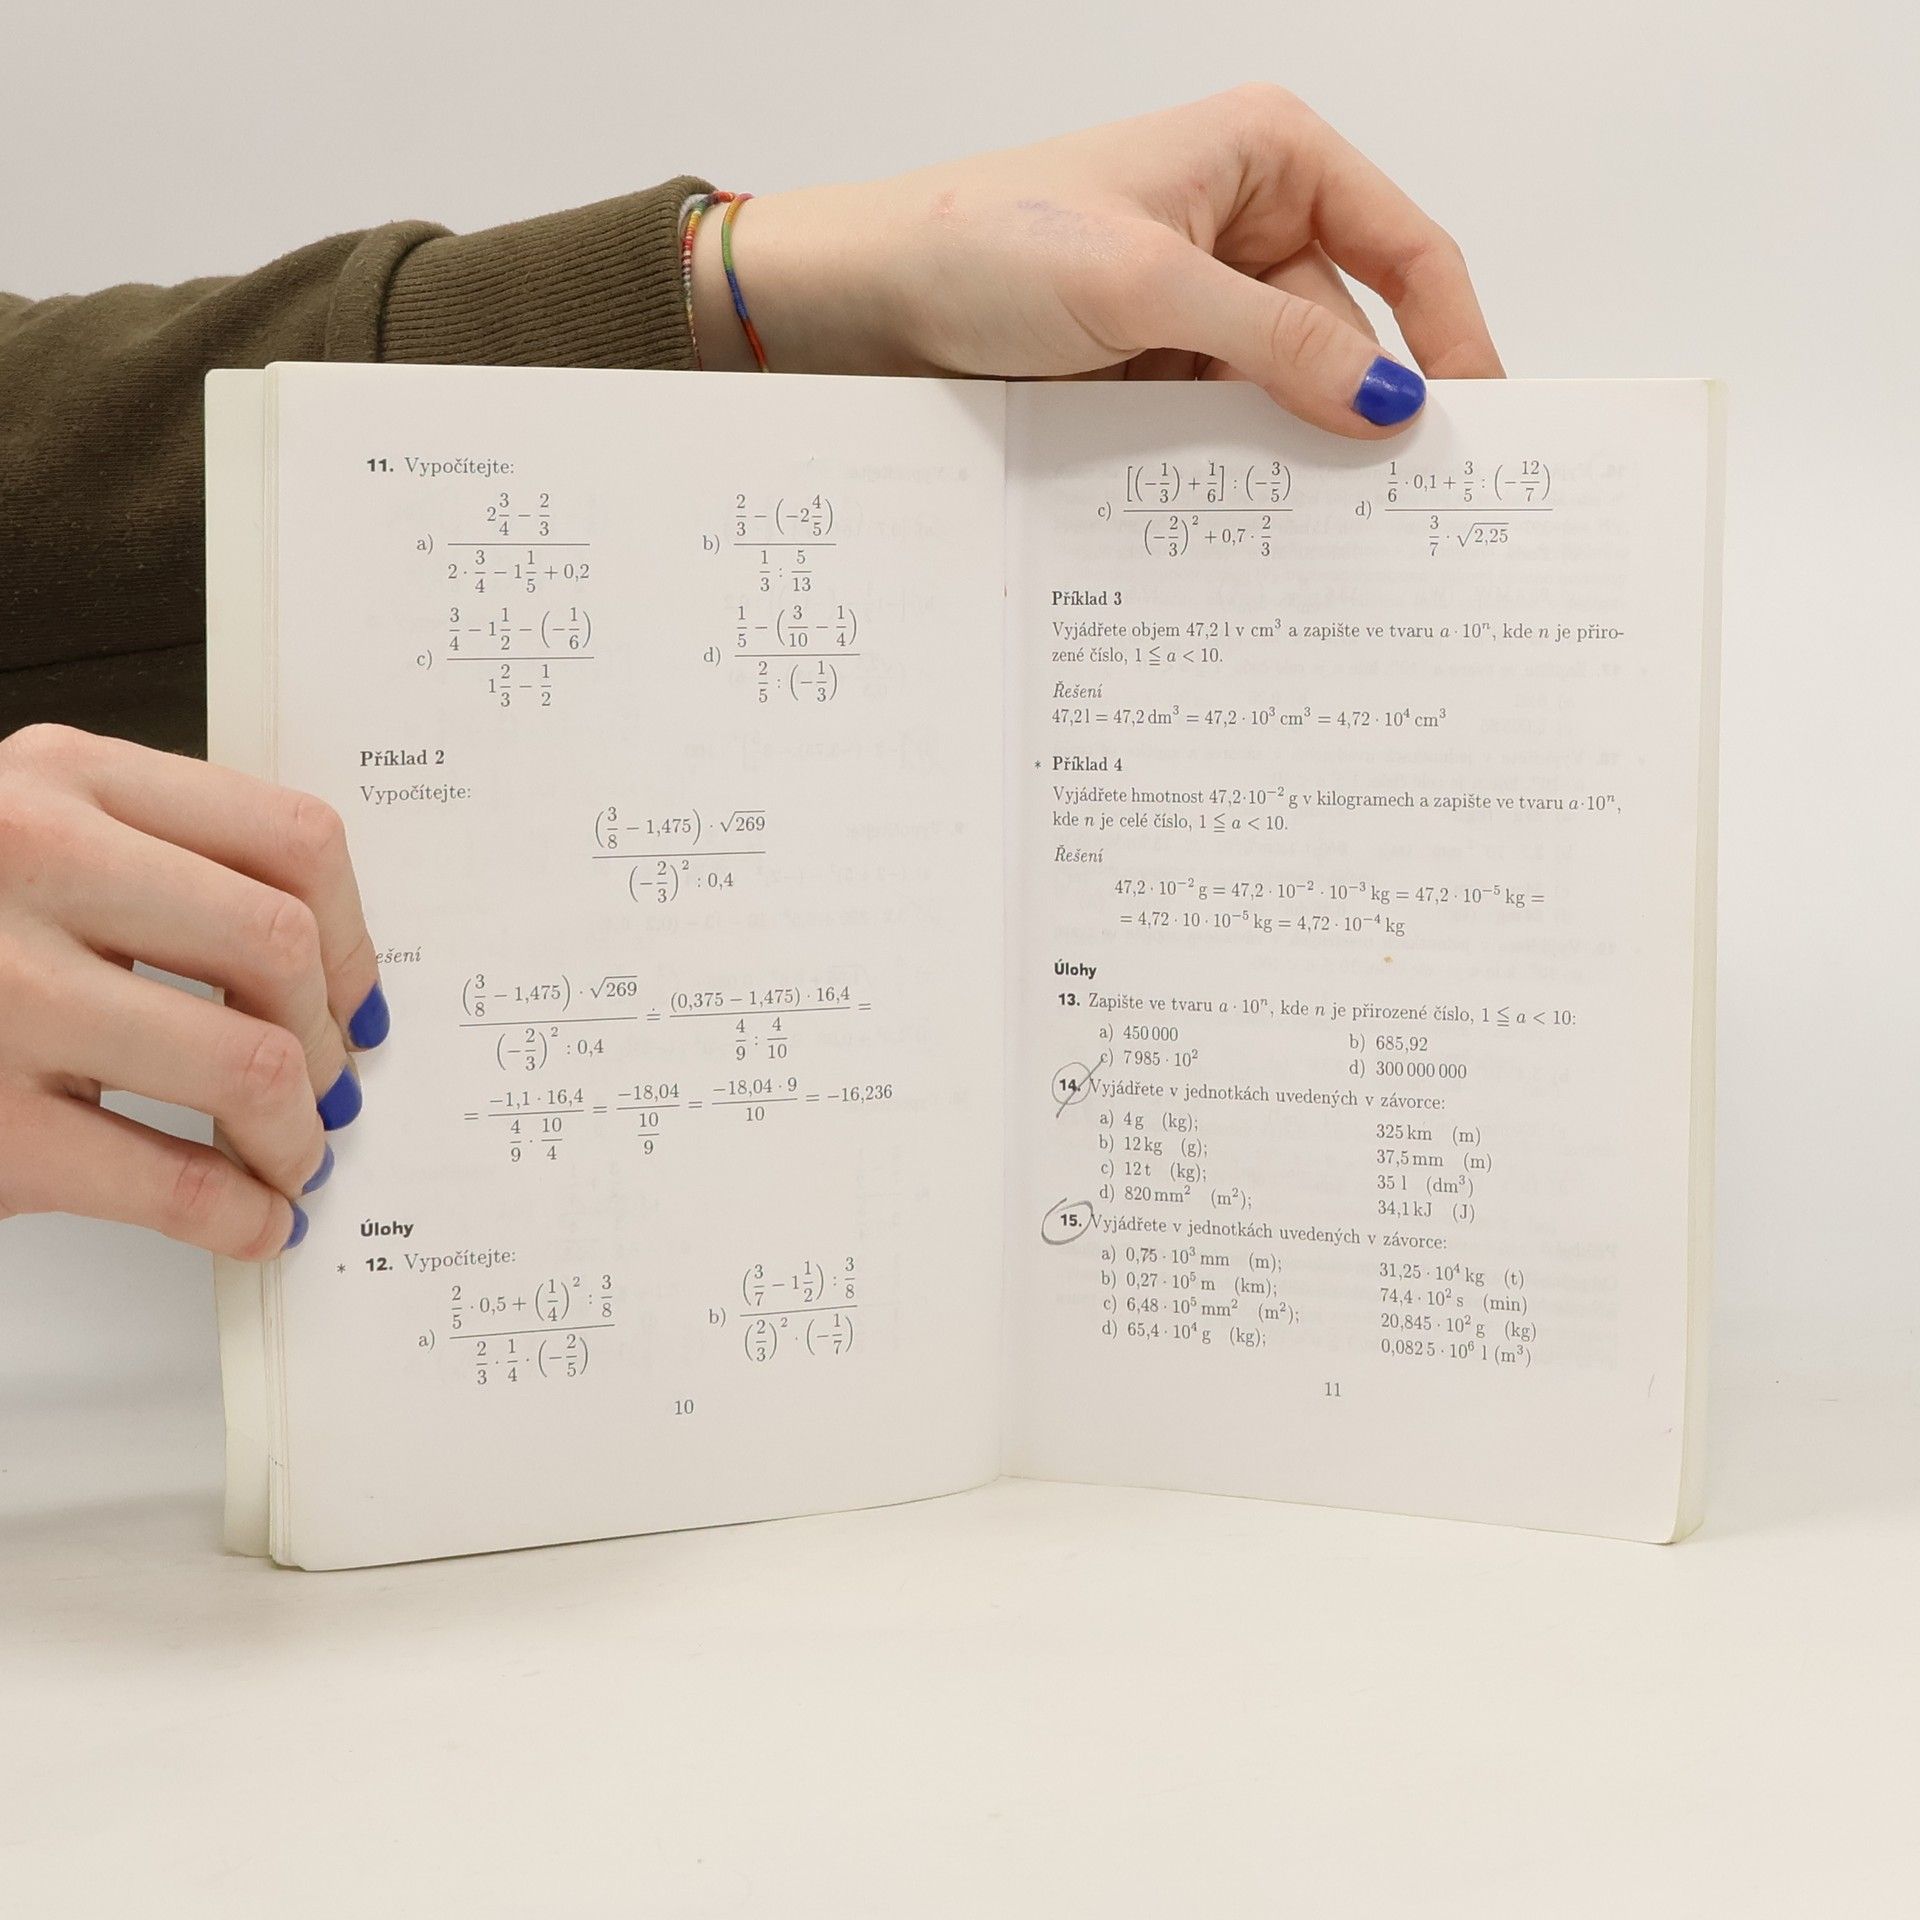 11. Vypočítejte:
a) \frac{2\frac{3}{4} - \frac{2}{3}}{2 \cdot \frac{3}{4} - 1\frac{1}{5} + 0,2}   b) \frac{\frac{2}{3} - (-2\frac{4}{5})}{\frac{1}{3} : \frac{5}{13}}
c) \frac{\frac{3}{4} - 1\frac{1}{2} - (-\frac{1}{6})}{1\frac{2}{3} - \frac{1}{2}}   d) \frac{\frac{1}{5} - (\frac{3}{10} - \frac{1}{4})}{\frac{2}{5} : (-\frac{1}{3})}
Příklad 2
Vypočítejte:
\frac{(\frac{3}{8} - 1,475) \cdot \sqrt{269}}{(-\frac{2}{3})^2 : 0,4}
ešení
\frac{(\frac{3}{8} - 1,475) \cdot \sqrt{269}}{(-\frac{2}{3})^2 : 0,4} ≐ \frac{(0,375 - 1,475) \cdot 16,4}{\frac{4}{9} : \frac{4}{10}} =
= \frac{-1,1 \cdot 16,4}{\frac{4}{9} \cdot \frac{10}{4}} = \frac{-18,04}{\frac{10}{9}} = \frac{-18,04 \cdot 9}{10} = -16,236
Úlohy
* 12. Vypočítejte:
a) \frac{\frac{2}{5} \cdot 0,5 + (\frac{1}{4})^2 : \frac{3}{8}}{\frac{2}{3} \cdot \frac{1}{4} \cdot (-\frac{2}{5})}   b) \frac{(\frac{3}{7} - 1\frac{1}{2}) : \frac{3}{8}}{(\frac{2}{3})^2 \cdot (-\frac{1}{7})}
10
c) \frac{[(-\frac{1}{3}) + \frac{1}{6}] : (-\frac{3}{5})}{(-\frac{2}{3})^2 + 0,7 \cdot \frac{2}{3}}   d) \frac{\frac{1}{6} \cdot 0,1 + \frac{3}{5} : (-\frac{12}{7})}{\frac{3}{7} \cdot \sqrt{2,25}}
Příklad 3
Vyjádřete objem 47,2 l v cm³ a zapište ve tvaru a · 10ⁿ, kde n je přiro-
zené číslo, 1 ≦ a < 10.
Řešení
47,2 l = 47,2 dm³ = 47,2 · 10³ cm³ = 4,72 · 10⁴ cm³
* Příklad 4
Vyjádřete hmotnost 47,2·10⁻² g v kilogramech a zapište ve tvaru a·10ⁿ,
kde n je celé číslo, 1 ≦ a < 10.
Řešení
47,2 · 10⁻² g = 47,2 · 10⁻² · 10⁻³ kg = 47,2 · 10⁻⁵ kg =
= 4,72 · 10 · 10⁻⁵ kg = 4,72 · 10⁻⁴ kg
Úlohy
13. Zapište ve tvaru a · 10ⁿ, kde n je přirozené číslo, 1 ≦ a < 10:
a) 450 000   b) 685,92
c) 7 985 · 10²   d) 300 000 000
14. Vyjádřete v jednotkách uvedených v závorce:
a) 4 g (kg);   325 km (m)
b) 12 kg (g);   37,5 mm (m)
c) 12 t (kg);   35 l (dm³)
d) 820 mm² (m²);   34,1 kJ (J)
15. Vyjádřete v jednotkách uvedených v závorce:
a) 0,75 · 10³ mm (m);   31,25 · 10⁴ kg (t)
b) 0,27 · 10⁵ m (km);   74,4 · 10² s (min)
c) 6,48 · 10⁵ mm² (m²);   20,845 · 10² g (kg)
d) 65,4 · 10⁴ g (kg);   0,082 5 · 10⁶ l (m³)
11